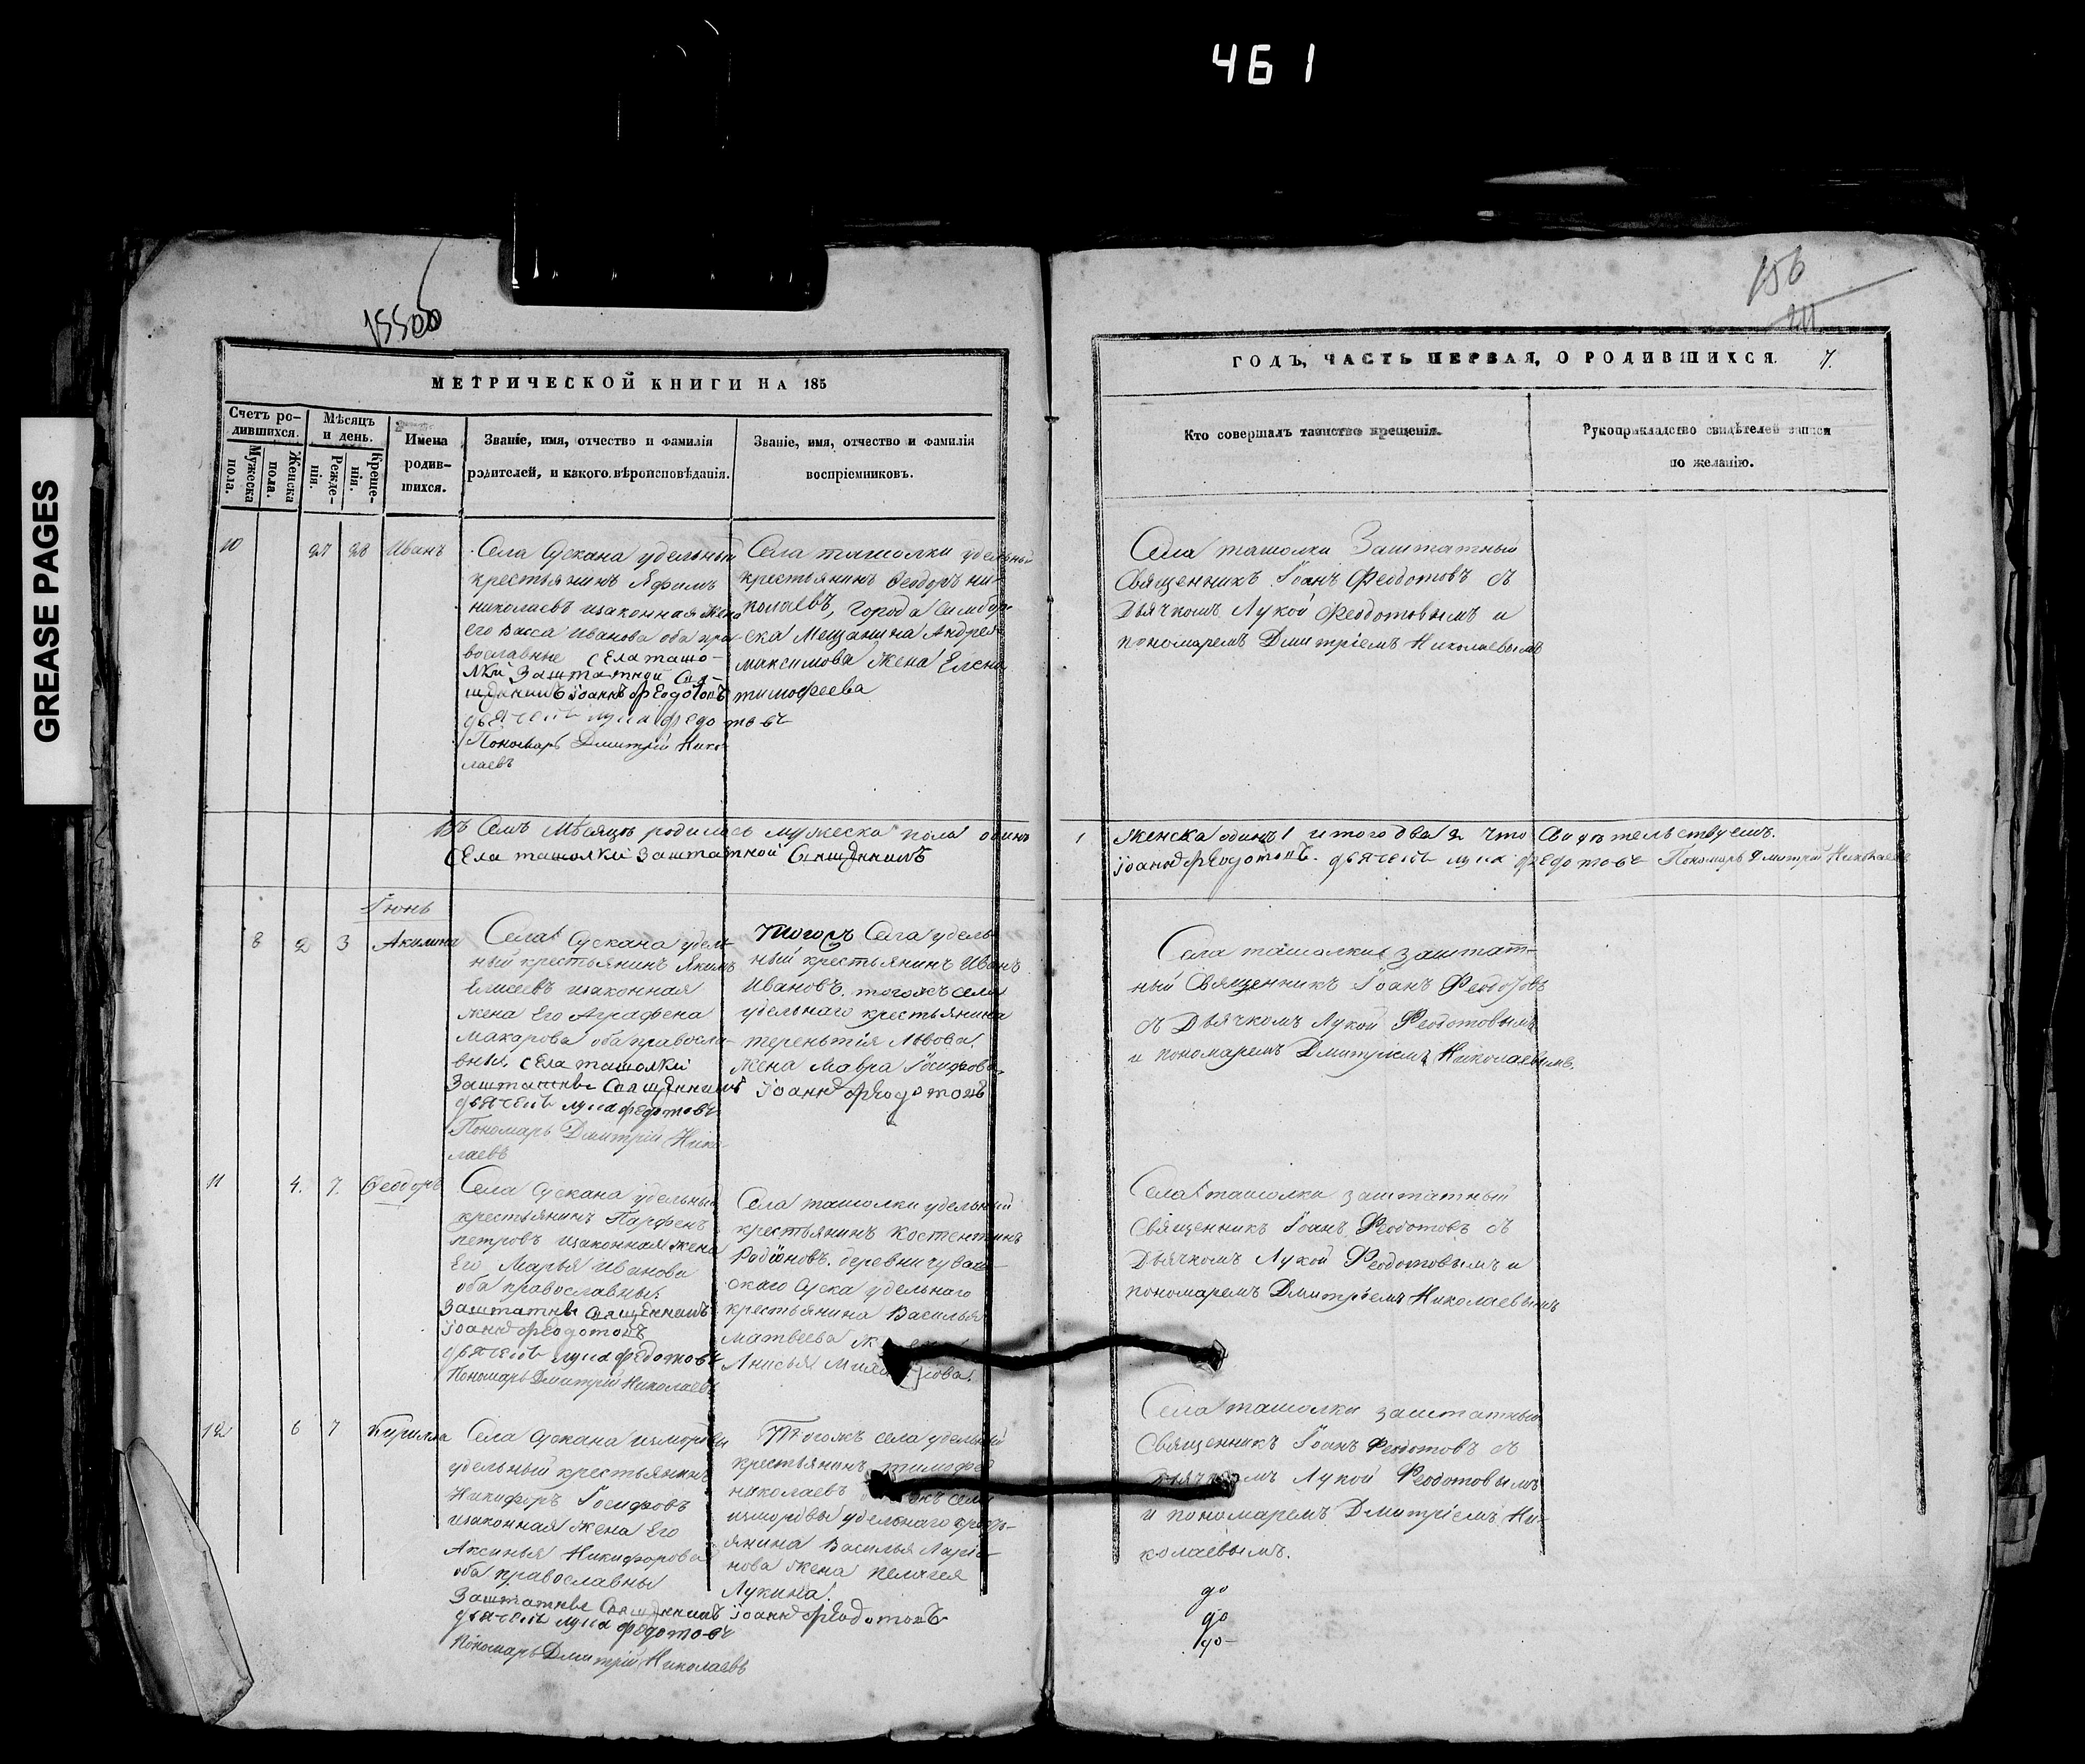 461
GREASE PAGES
156
МЕТРИЧЕСКОЙ КНИГИ НА 185
Счетъ ро-
дившихся.
Мужеска
пола.
Женска
пола.
Мѣсяцъ
и день.
Рожде-
нія.
Креще-
нія.
Имена
родив-
шихся.
Званіе, имя, отчество и фамилія
родителей, и какого вѣроисповѣданія.
Званіе, имя, отчество и фамилія
воспріемниковъ.
10
27
28
Иванъ
Села Сускана удельный
крестьянинъ Яфимъ
николаевъ изаконная жена
его Васса Иванова оба пра-
вославные села ташо-
лки Заштатной Свя-
щенникъ Iоаннъ Феодотовъ
дьячекъ лука федотовъ
Пономарь Дмитрій Нико-
лаевъ
Села ташолки удельный
крестьянинъ Феодоръ ни-
колаевъ, города Симбир
ска Мещанина Андрея
максимова жена Елена
тимофеева
Въ Семъ Мѣсяцѣ родилось мужеска пола одинъ
села ташолки Заштатной Священникъ
Iюнь
8
2
3
Акилина
Села Сускана удель-
ный крестьянинъ Якимъ
Елисеевъ изаконная
жена Его Аграфена
Макарова оба правосла-
вныя, села ташолки
Заштатны Священникъ
дьячекъ лука федотовъ
Пономарь Дмитрій Нико-
лаевъ
Тогожъ Села удель-
ный крестьянинъ Иванъ
Ивановъ. тогожъ села
удельнаго крестьянина
терентія Львова
жена Мавра Iосифова
Iоаннъ Феодотовъ
11
4.
7.
Феодоръ
Села Сускана удельный
крестьянинъ Парфенъ
петровъ изаконная жена
Его Марья Иванова
оба православны.
Заштатны Священникъ
Iоаннъ Феодотовъ
дьячекъ лука федотовъ
Пономарь Дмитрій Николаевъ
Села ташолки удельный
крестьянинъ Костентинъ
Родіоновъ. деревни чуваш-
скаго Суска удельнаго
крестьянина Василья
Матвеева
Анисья
12
6
7
Кирилла
Села Сускана измордвы
удельный крестьянинъ
Никифоръ Iосифовъ
изаконная жена Его
Аксинья Никифорова
оба православны
Заштатны Священникъ
дьячекъ лука федотовъ
Пономарь Дмитрій Николаевъ
Тогожъ села удельный
крестьянинъ тимофей
николаевъ села
измордвы удельнаго кресть-
янина Василья Ларiо-
нова жена пелагея
Лукина
Iоаннъ Феодотовъ
ГОДЪ, ЧАСТЬ ПЕРВАЯ, О РОДИВШИХСЯ. 7.
Кто совершалъ таинство крещенія.
Рукоприкладство свидѣтелей записи
по желанію.
Села ташолки Заштатный
Священникъ Iоанъ Феодотовъ съ
Дьячкомъ Лукой Феодотовымъ и
пономаремъ Дмитріемъ Николаевымъ
1 женска одинъ 1 итого два 2 что Свидѣтельствуемъ.
Iоаннъ Феодотовъ. дьячекъ лука федотовъ Пономарь Дмитрій Николаевъ
Села ташолки заштат-
ный Священникъ Iоанъ Феодотовъ
съ Дьячкомъ Лукой Феодотовымъ
и пономаремъ Дмитріемъ Николаевымъ.
Села ташолки заштатный
Священникъ Iоанъ Феодотовъ съ
Дьячкомъ Лукой Феодотовымъ и
пономаремъ Дмитріемъ Николаевымъ
Села ташолки заштатный
Священникъ Iоанъ Феодотовъ съ
Дьячкомъ Лукой Феодотовымъ
и пономаремъ Дмитріемъ Ни-
колаевымъ.
до
до
до